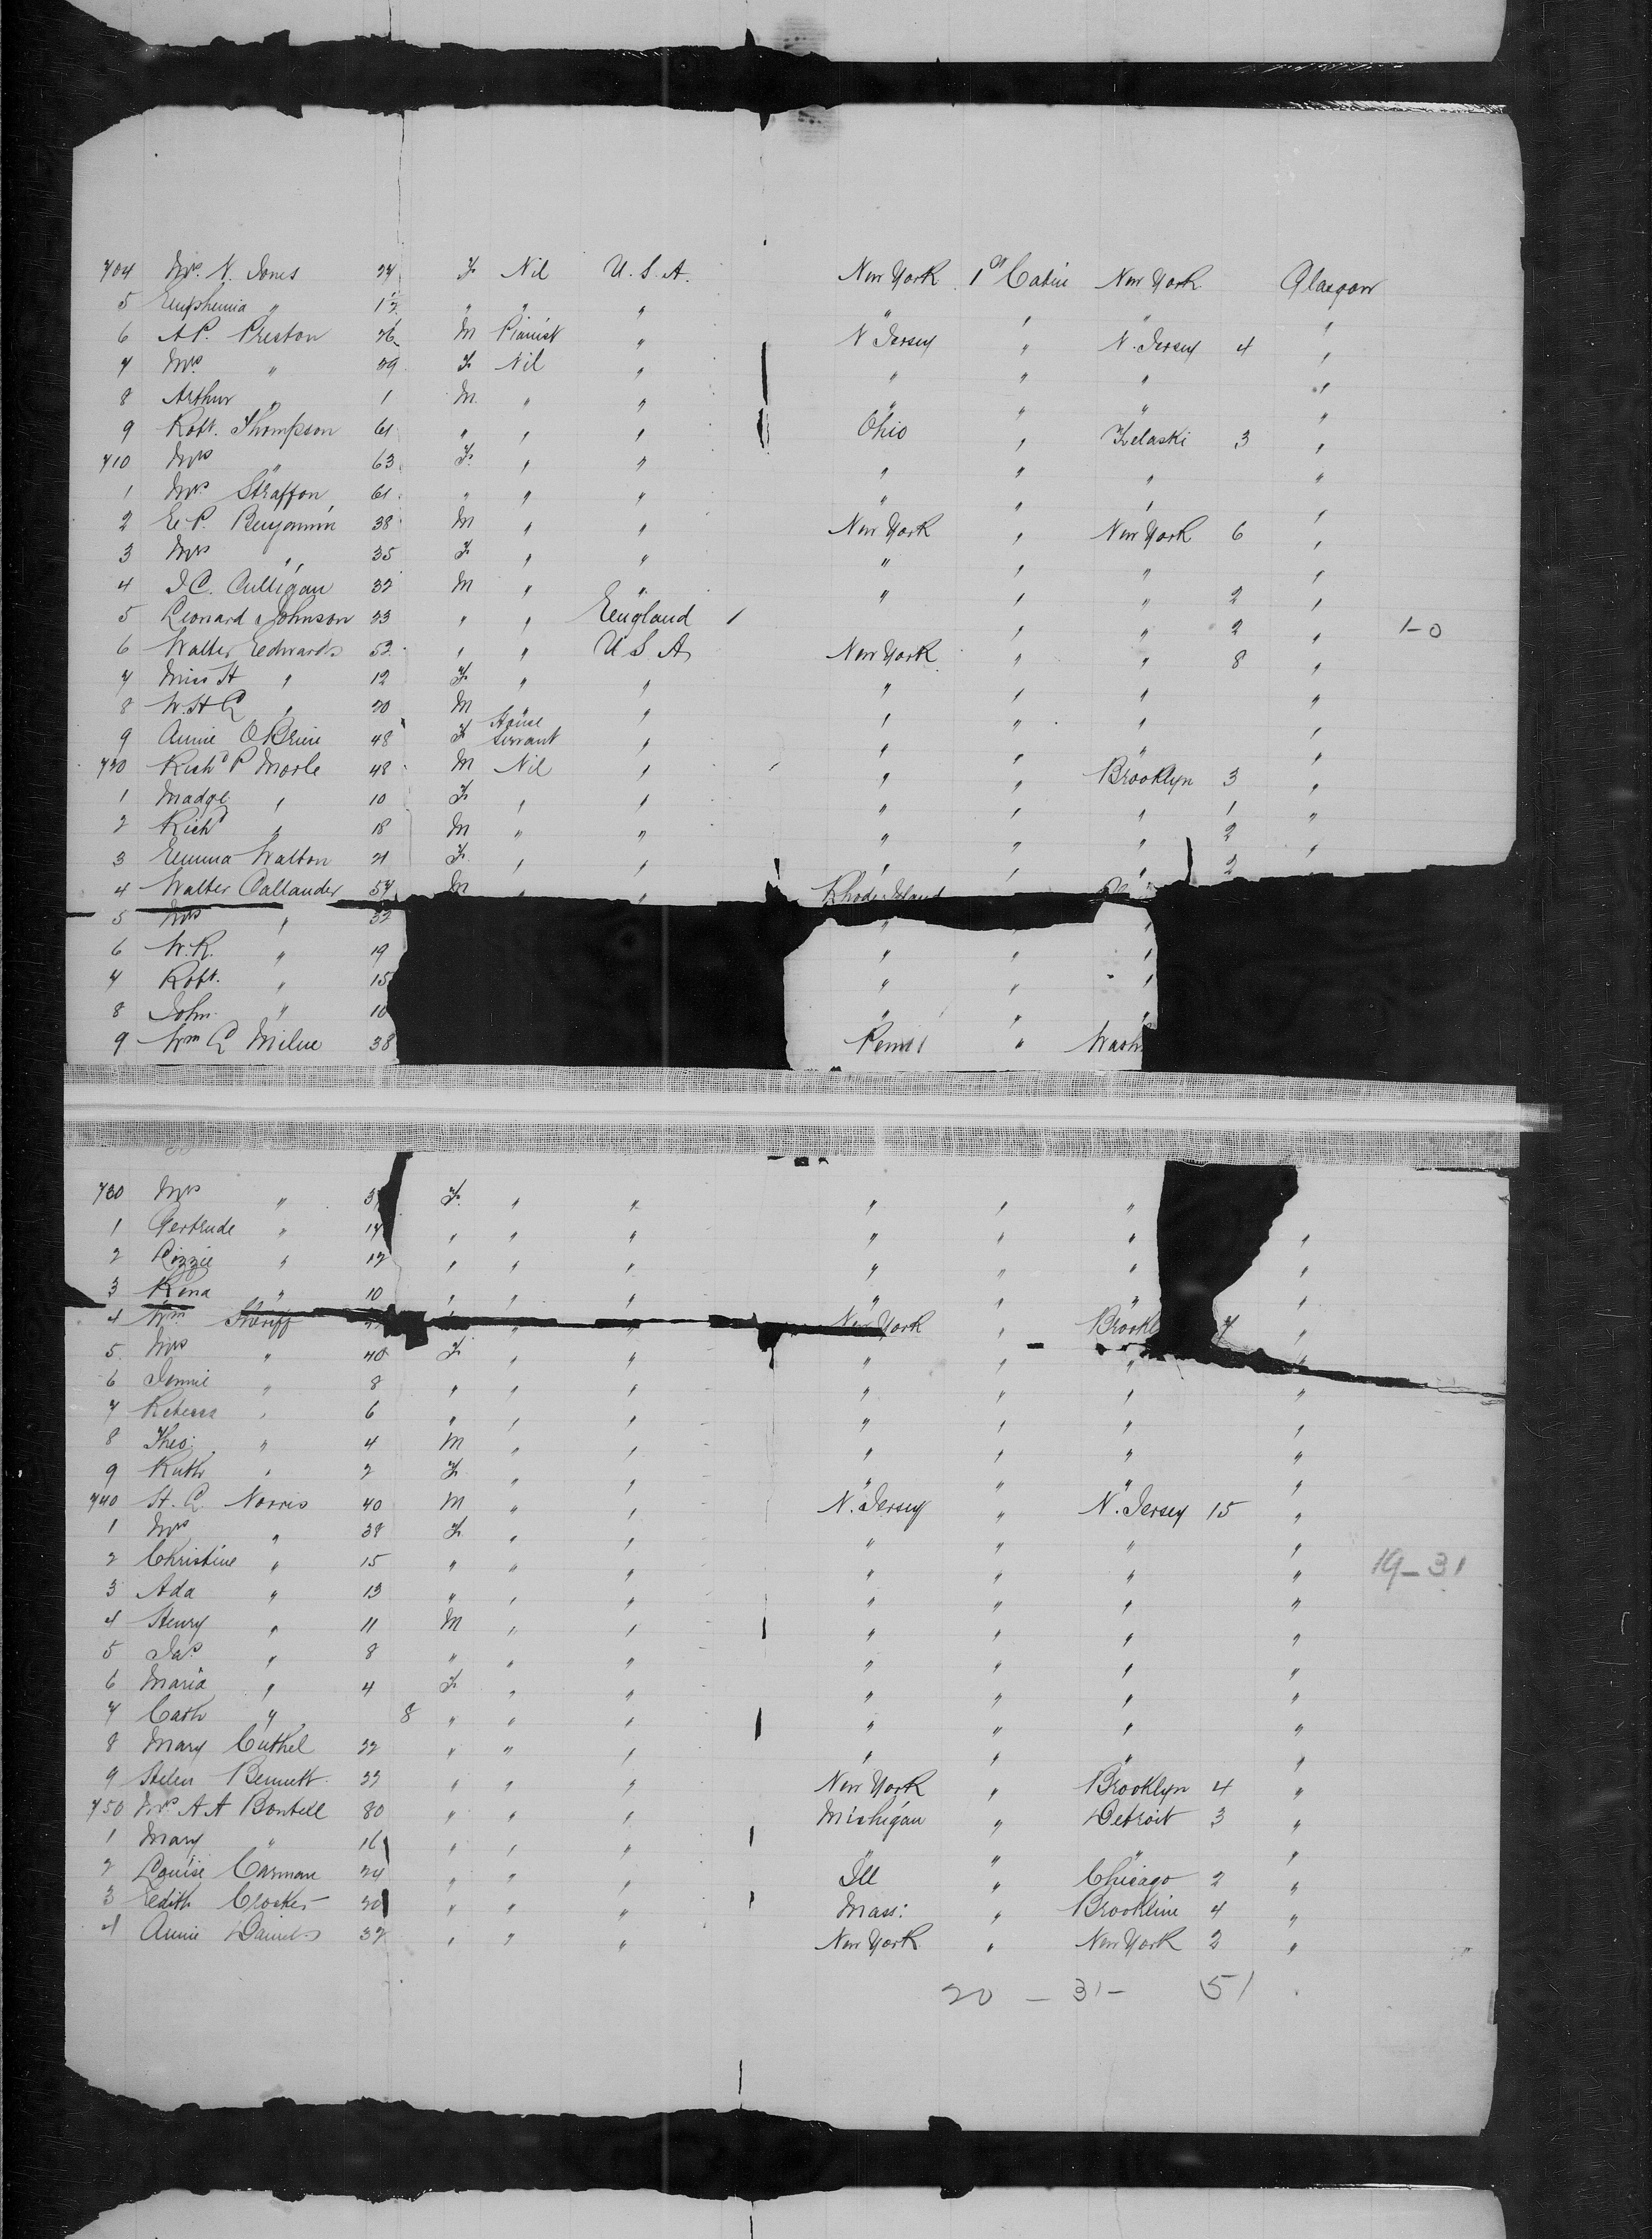 704 Mrs. N. Jones 27 F Nil U.S.A. New York 1st Cabin New York Glasgow
5 Euphemia " 1½ " " " " " " "
6 A P. Preston 26 M Pianist " N Jersey " N. Jersey 4 "
7 Mrs " 29 F Nil " " " " "
8 Arthur " 1 M " " " " " "
9 Robt. Thompson 61 " " " Ohio " Zelaski 3 "
710 Mrs " 63 F " " " " " "
1 Mrs Straffon 61 " " " " " " "
2 E P. Benjamin 38 M " " New York " New York 6 "
3 Mrs " 35 F " " " " " "
4 J C. Culligan 32 M " " " " " 2 "
5 Leonard Johnson 23 " " England 1 " " 2 " 1-0
6 Walter Edwards 52 " " U S A New York " " 8 "
7 Miss H " 12 F " " " " " "
8 W. H G " 20 M " " " " " "
9 Annie O'Brien 48 F House Servant " " " " "
720 Richd P Morle 48 M Nil " " " Brooklyn 3 "
1 Madge " 10 F " " " " " 1 "
2 Richd " 18 M " " " " " 2 "
3 Emma Walton 21 F " " " " " 2
4 Walter Callander 57 M " " Rhode Island
5 Mrs " 52 " "
6 W. R. " 19 " " "
7 Robt. " 15 " " "
8 John " 10 " " "
9 Wm G Milne 38 Penna " Wash
730 Mrs " 3 F " " " " "
1 Gertrude " 14 " " " " " " "
2 Lizzie " 12 " " " " " " "
3 Rena " 10 " " " " " " "
4 Wm Sheriff " " New York " Brookl 7 "
5 Mrs " 40 F " " " " " "
6 Jennie " 8 " " " " " " "
7 Rebecca " 6 " " " " " " "
8 Theo: " 4 M " " " " " "
9 Ruth " 2 F " " " " " "
740 H. G. Norris 40 M " " N. Jersey " N. Jersey 15 "
1 Mrs " 38 F " " " " " "
2 Christine " 15 " " " " " " " 19-31
3 Ada " 13 " " " " " " "
4 Henry " 11 M " " " " " "
5 Jas " 8 " " " " " " "
6 Maria " 4 F " " " " " "
7 Cath " 8 " " " " " " "
8 Mary Cuthel 22 " " " " " " "
9 Helen Bennett 33 " " " New York " Brooklyn 4 "
750 Mrs A A Boutell 80 " " " Michigan " Detroit 3 "
1 Mary " 16 " " " " " " "
2 Louise Carman 24 " " " Ill " Chicago 2 "
3 Edith Crocker 30 " " " Mass: " Brookline 4 "
4 Annie Daniels 32 " " " New York " New York 2 "
20 - 31 - 51